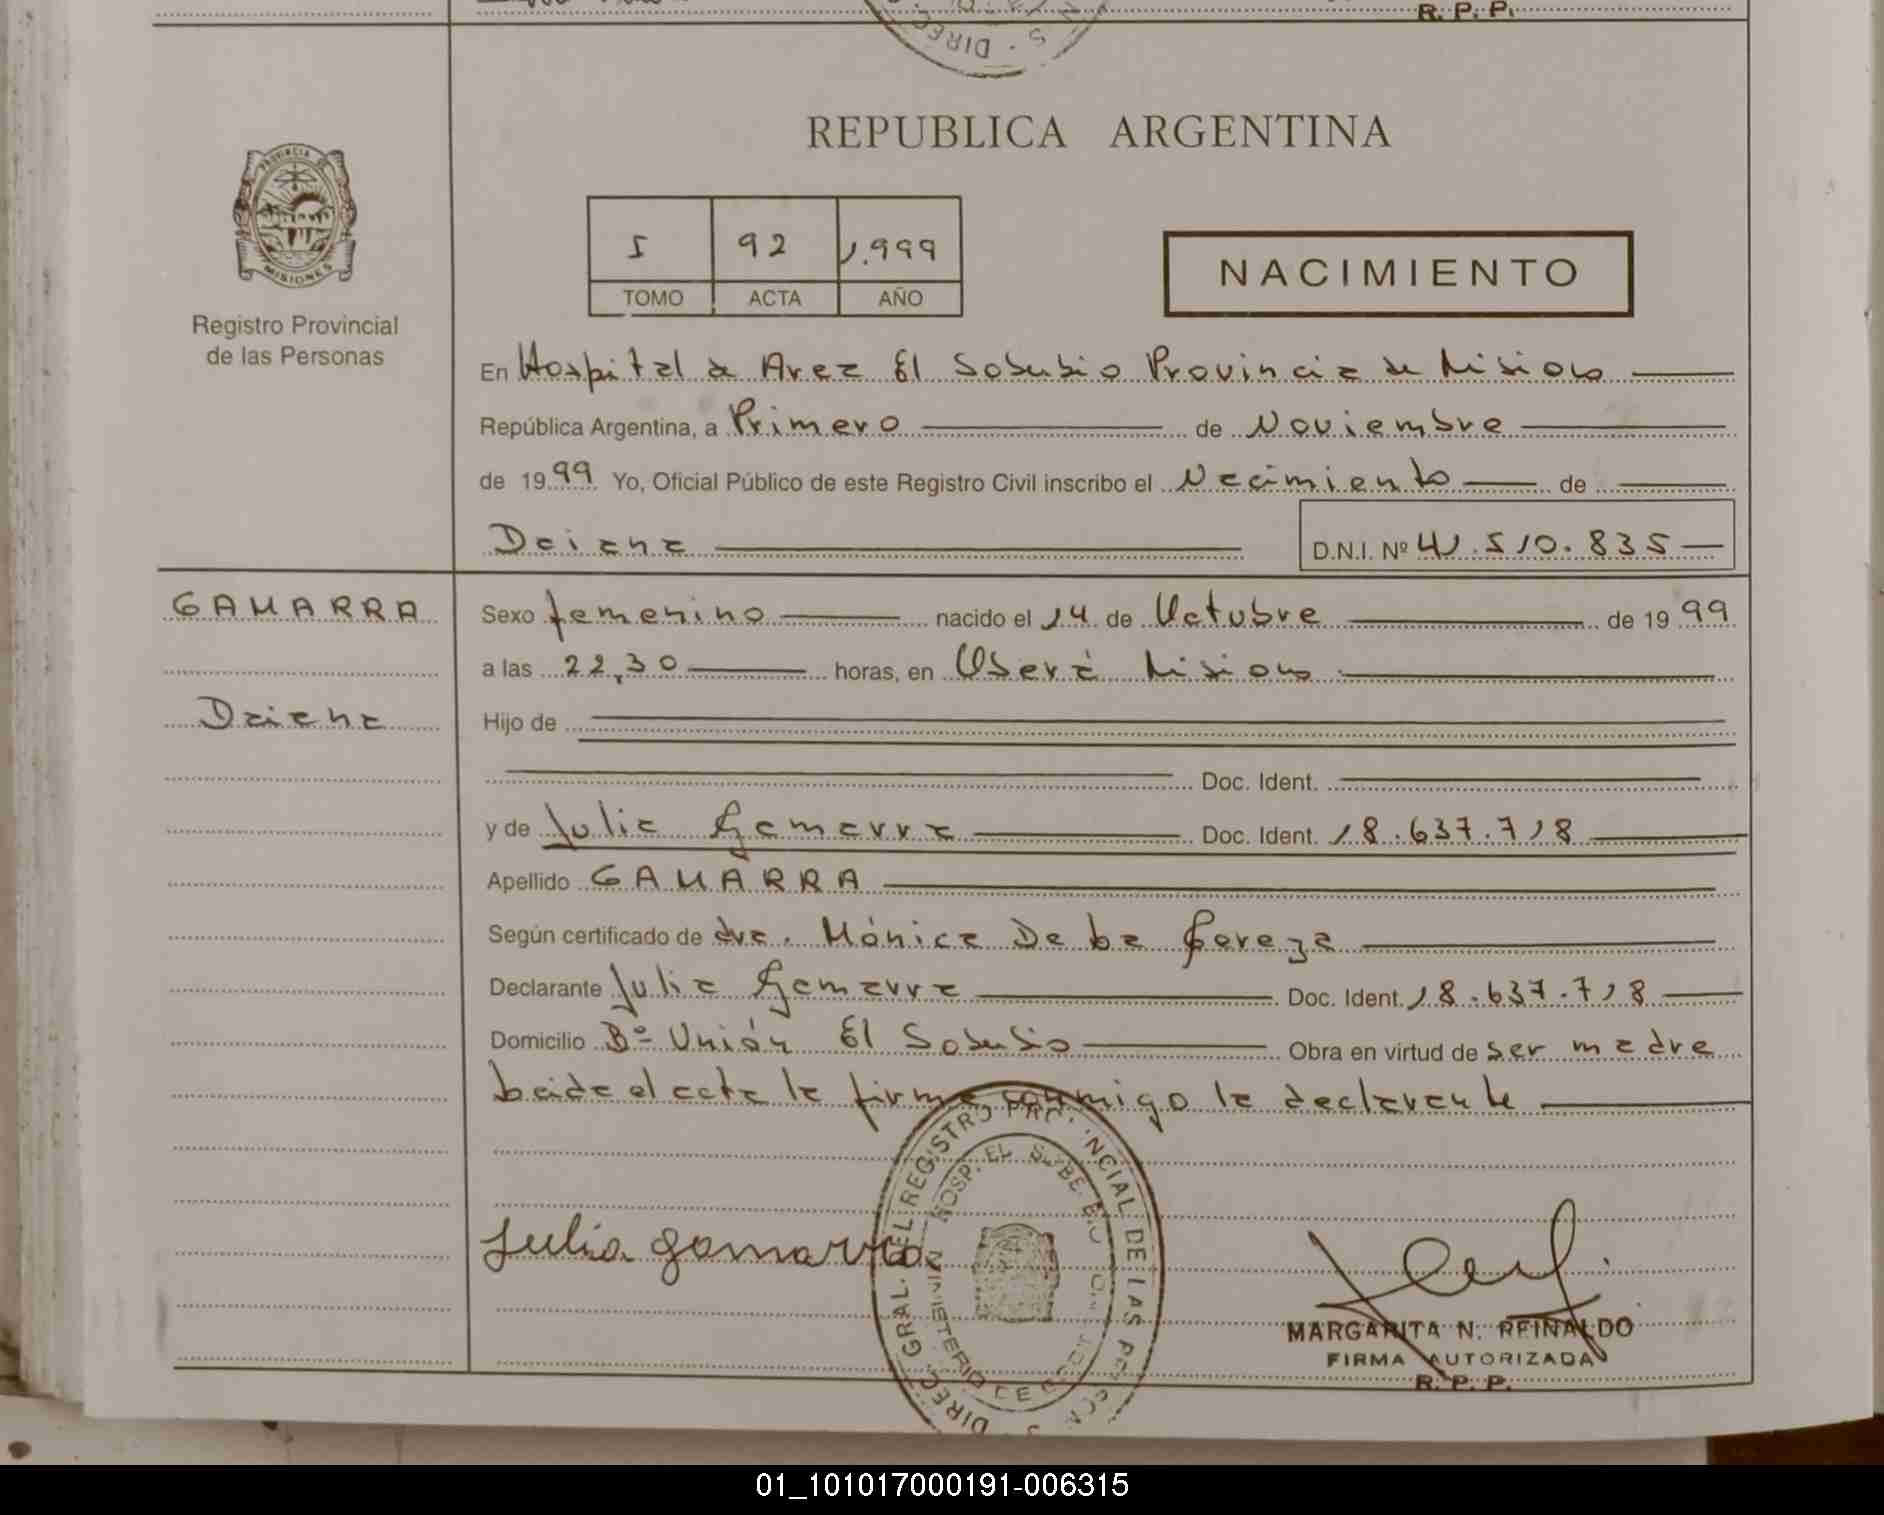 R. P. P.
DIREC
REPUBLICA ARGENTINA
PROVINCIA DE
MISIONES
Registro Provincial
de las Personas
I 92 1.999
TOMO ACTA AÑO
NACIMIENTO
En Hospital de Area El Soberbio Provincia de Misiones
República Argentina, a Primero de Noviembre
de 1999 Yo, Oficial Público de este Registro Civil inscribo el Nacimiento de
Daiana D.N.I. Nº 41.510.835
GAMARRA
Daiana
Sexo femenino nacido el 14 de Octubre de 1999
a las 22,30 horas, en Oberá Misiones
Hijo de
Doc. Ident.
y de Julia Gamarra Doc. Ident. 18.637.718
Apellido GAMARRA
Según certificado de dra. Mónica De
Declarante Julia Gamarra Doc. Ident. 18.637.718
Domicilio Bº Unión El Soberbio Obra en virtud de ser madre
Leida el acta la firma conmigo la declarante
Julia gamarra
DIREC. GRAL. DEL REGISTRO PROVINCIAL DE LAS
HOSP. EL SOBERBIO
MINISTERIO DE
MARGARITA N. REINALDO
FIRMA AUTORIZADA
R. P. P.
01_101017000191-006315